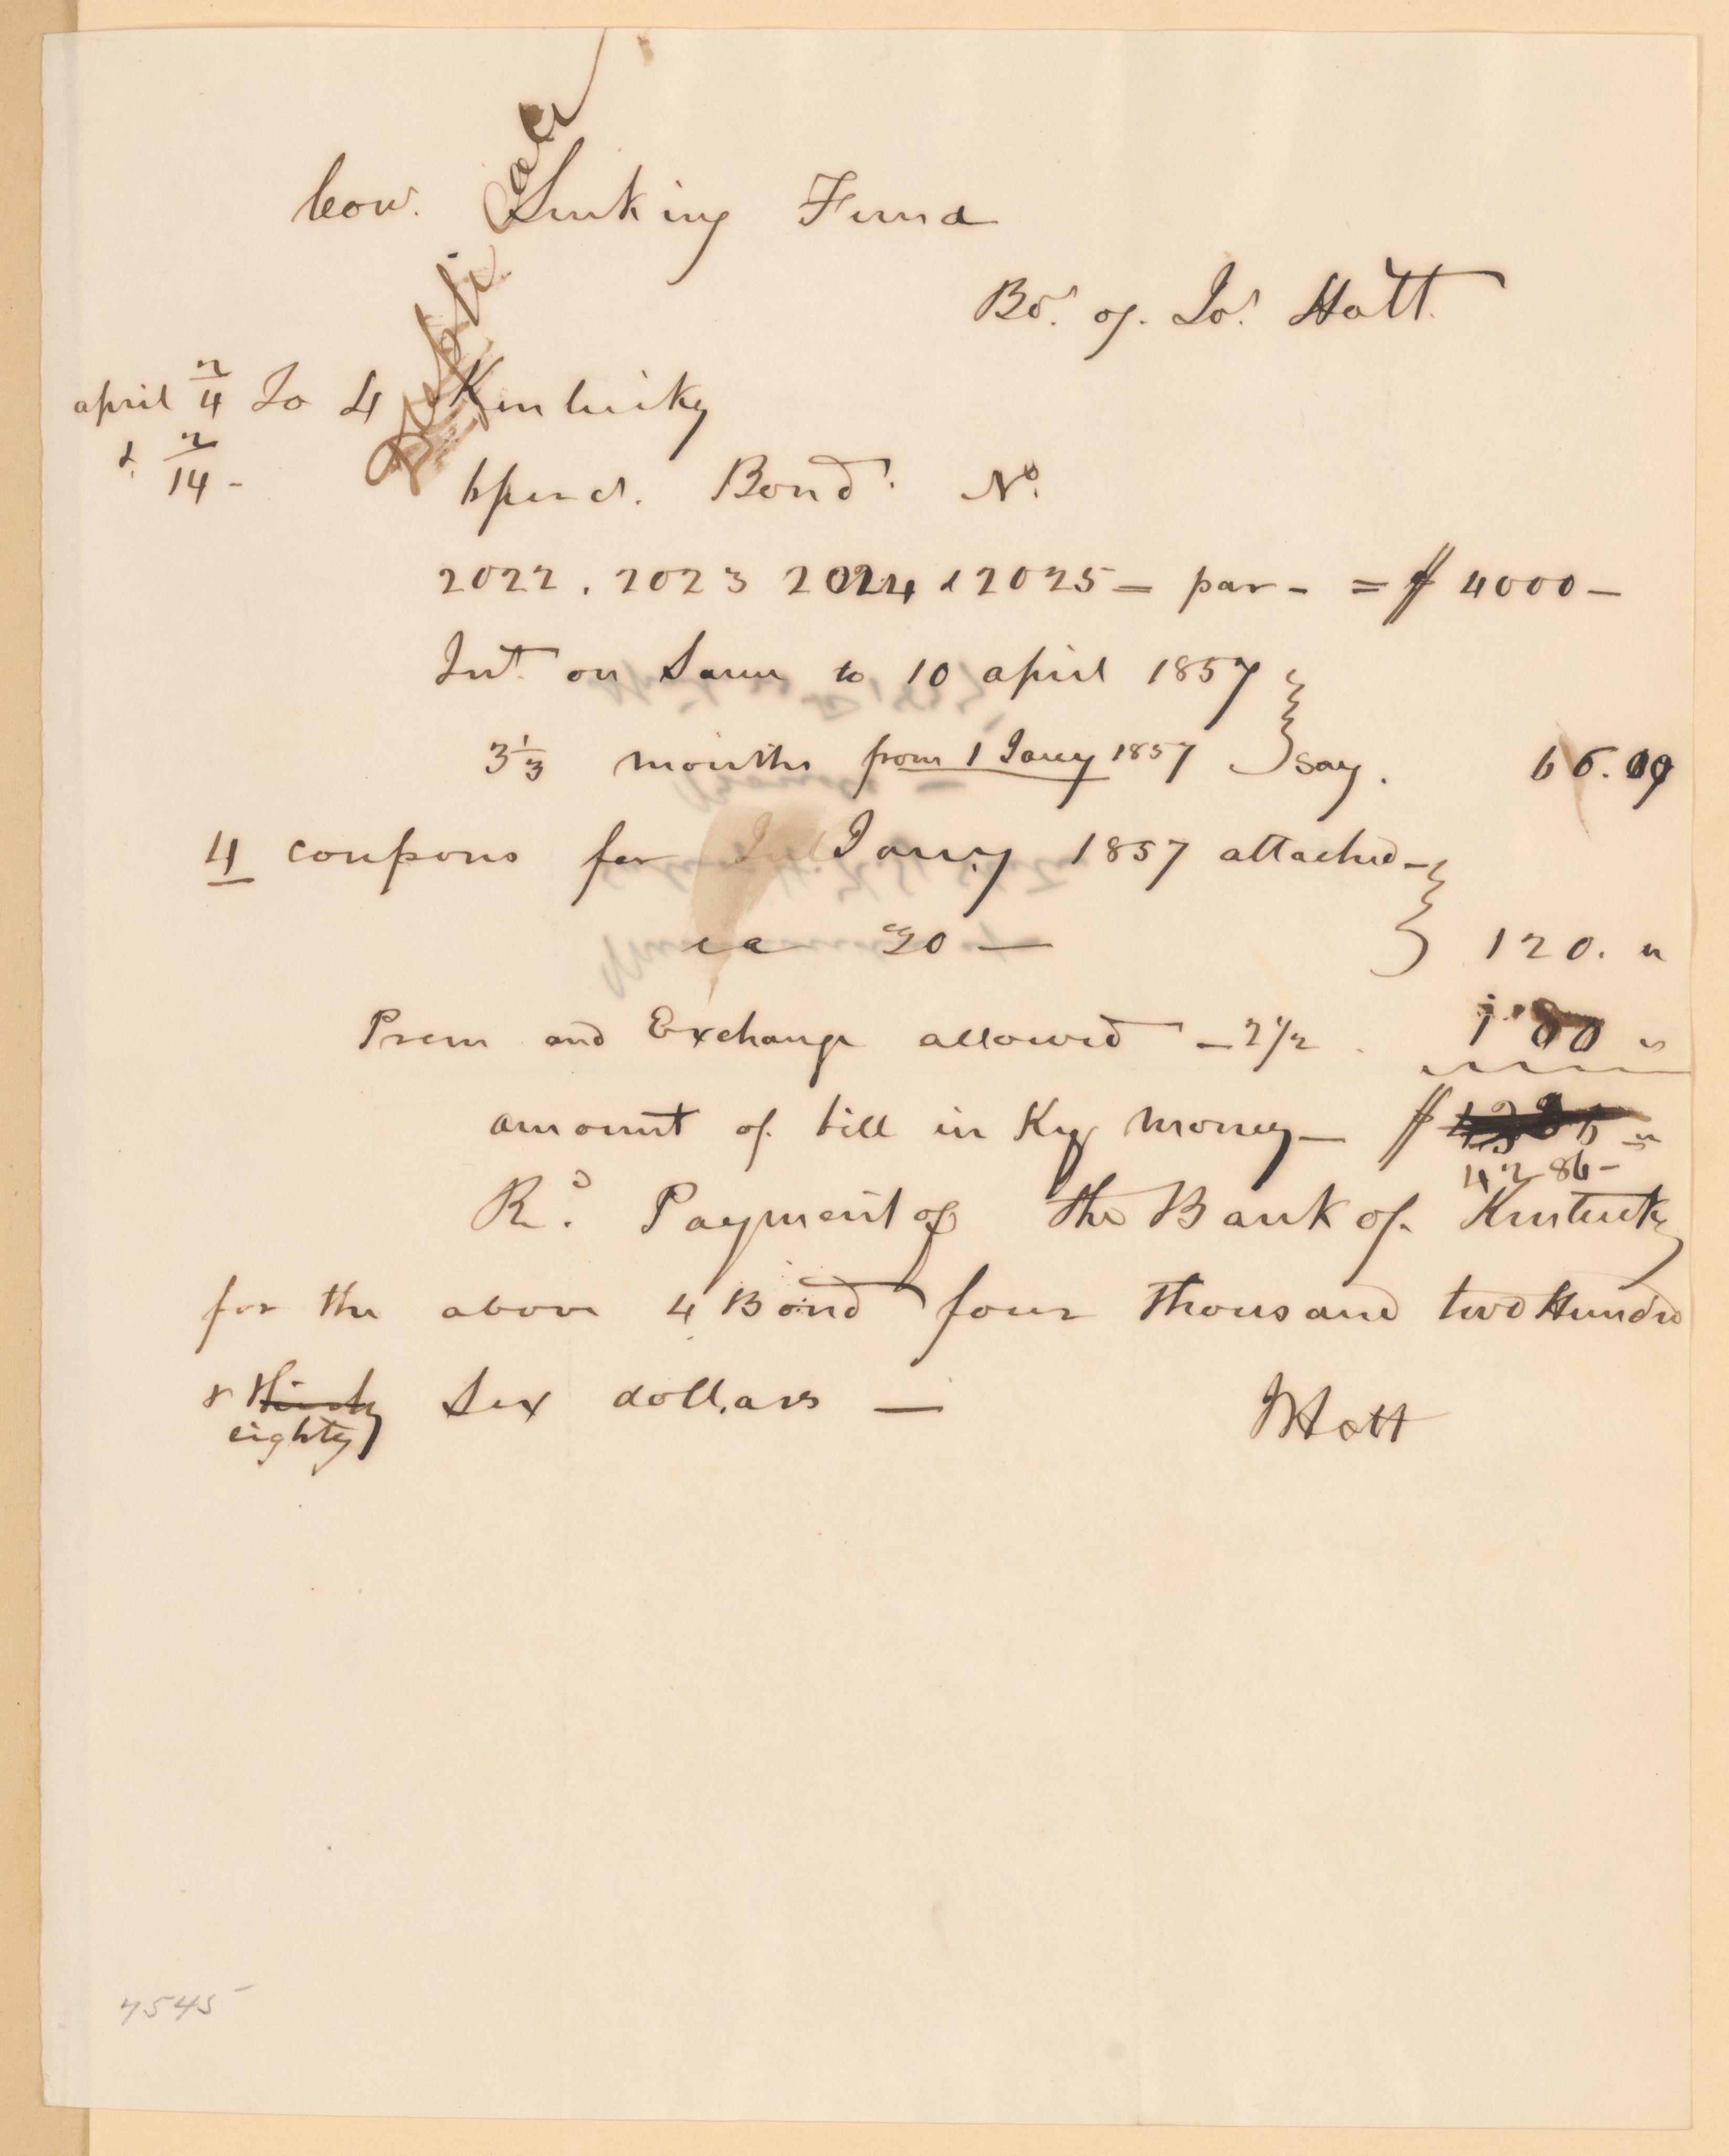 Duplicate
Com. Sinking Fund
Bot. of Jos. Hatt.
april 4 To 4 Kentucky
& 14 -
6 per ct. Bonds. No.
2022. 2023 2024 & 2025 = par - = $ 4000 -
Int. on Same to 10 april 1857
3 1/3 months from 1 Jany 1857 } say. 66.00
4 coupons for Jany 1857 attached -
ea 30 — } 120. "
Prem and Exchange allowed - 2 1/2 100 "
amount of bill in Ky money - $ "
4286 -
Rd. Payment of the Bank of Kentucky
for the above 4 Bond four thousand two Hundre
& thirty Six dollars —
eighty
JHatt
7545